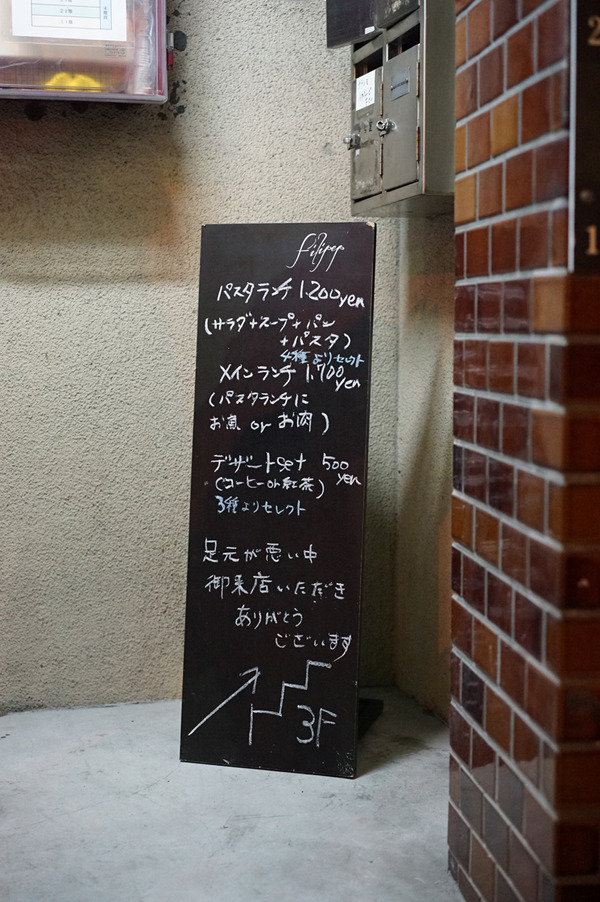 filipep
パスタランチ 1.200yen
(サラダ+スープ+パン
+パスタ)
4種よりセレクト
メインランチ 1.700yen
(パスタランチに
お魚 or お肉)
デザートset 500yen
(コーヒーor紅茶)
3種よりセレクト
足元が悪い中
御来店いただき
ありがとう
ございます
3F
2
1